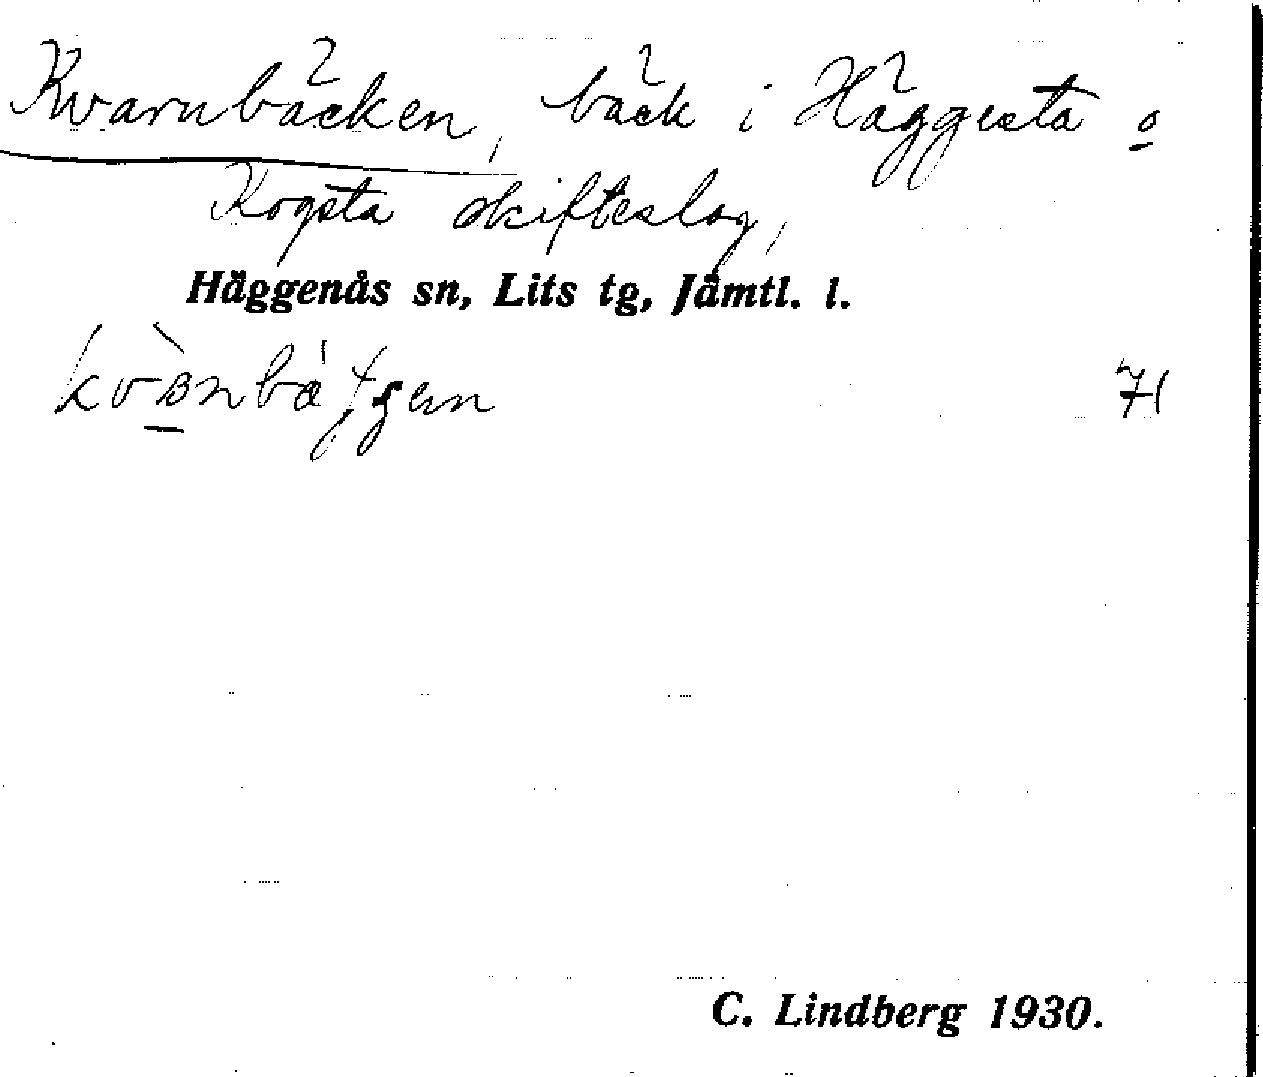 Kvarnbäcken, bäck i Häggesta o
Kogsta skifteslag,
Häggenås sn, Lits tg, Jämtl. l.
71
C. Lindberg 1930.